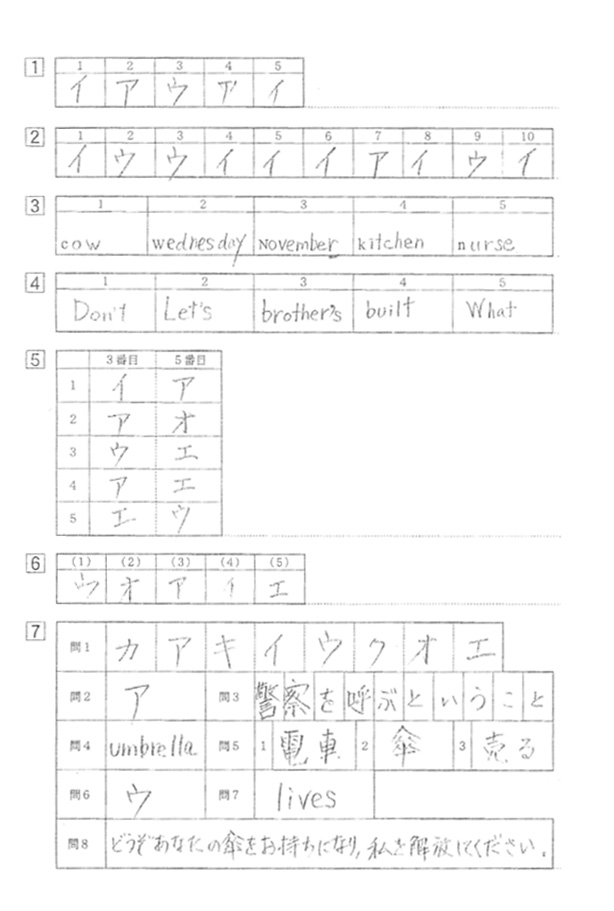 1 1 2 3 4 5
イ ア ウ ア イ
2 1 2 3 4 5 6 7 8 9 10
イ ウ ウ イ イ イ ア イ ウ イ
3 1 2 3 4 5
cow wednesday November kitchen nurse
4 1 2 3 4 5
Don't Let's brother's built What
5 3番目 5番目
1 イ ア
2 ア オ
3 ウ エ
4 ア エ
5 エ ウ
6 (1) (2) (3) (4) (5)
ウ オ ア イ エ
7 問1 カ ア キ イ ウ ク オ エ
問2 ア 問3 警察を呼ぶということ
問4 umbrella 問5 1 電車 2 傘 3 売る
問6 ウ 問7 lives
問8 どうぞあなたの傘をお持ちになり,私を解放してください.